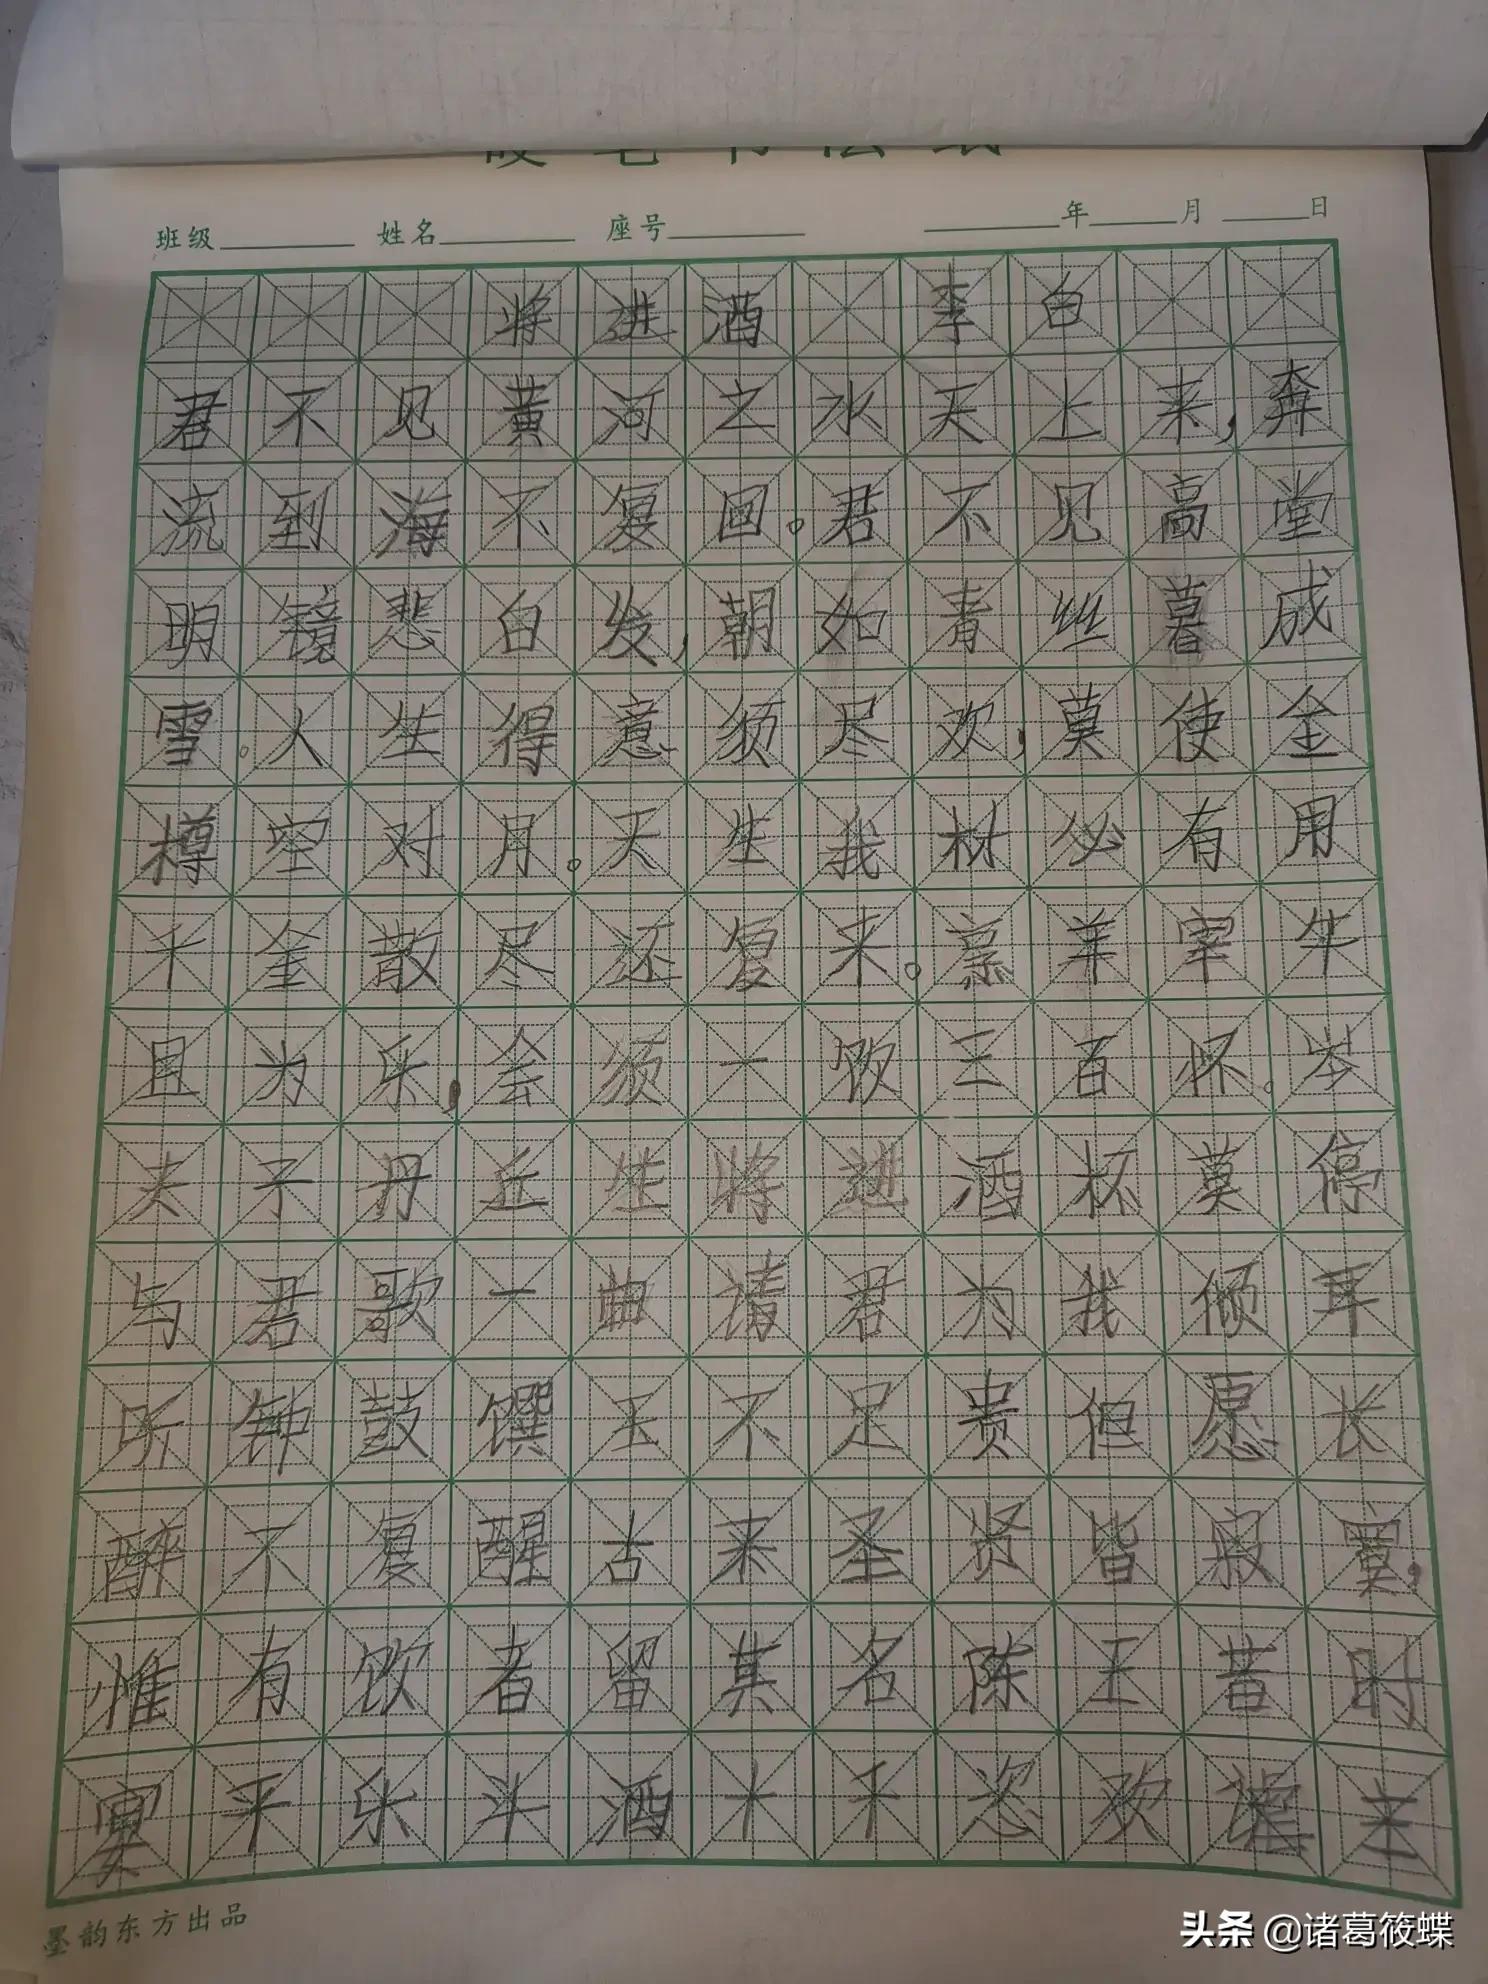 班级 姓名 座号 年 月 日
将进酒 李白
君不见黄河之水天上来,奔
流到海不复回。君不见高堂
明镜悲白发,朝如青丝暮成
雪。人生得意须尽欢,莫使金
樽空对月。天生我材必有用
千金散尽还复来。烹羊宰牛
且为乐,会须一饮三百杯。岑
夫子丹丘生将进酒杯莫停
与君歌一曲请君为我倾耳
听钟鼓馔玉不足贵但愿长
醉不复醒古来圣贤皆寂寞,
惟有饮者留其名陈王昔时
宴平乐斗酒十千恣欢谑主
墨韵东方出品
头条 @诸葛筱蝶